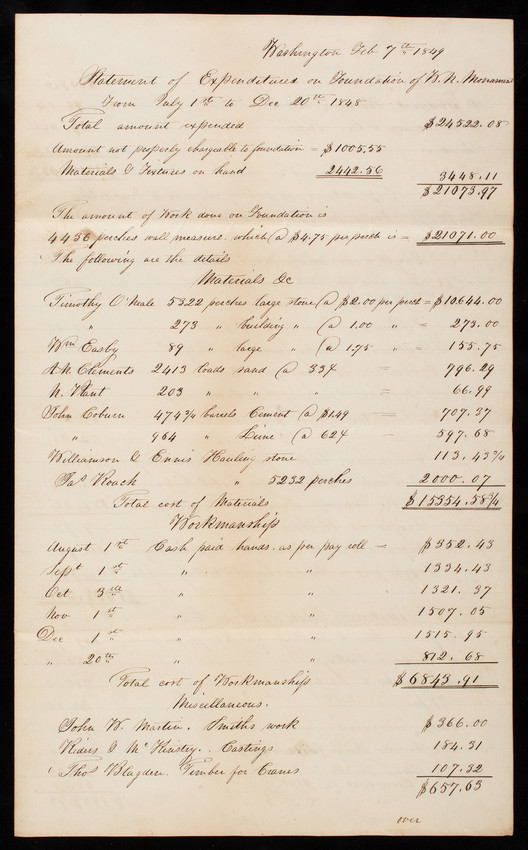 Washington Feb 7th 1849
Statement of Expenditures on Foundation of W. N. Monument
From July 1st to Dec 20th 1848
Total amount expended $24522.08
Amount not properly chargeable to foundation = $1005.55
Materials & Fixtures on hand 2442.56 3448.11
$21073.97
The amount of Work done on Foundation is
4436 perches wall measure. which @ $4.75 per perch is = $21071.00
The following are the details
Materials &c
Timothy O'Neale 5322 perches large stone @ $2.00 per perch = $10644.00
" 273 " building " @ 1.00 " = 273.00
Wm Easby 89 " large " @ 1.75 " = 155.75
A.N. Clements 2413 loads sand @ 33¢ = 796.29
N. Plant 203 " " " = 66.99
John Coburn 474¾ barrels Cement @ $1.49 = 707.37
" 964 " Lime @ 62¢ - 597.68
Williamson & Ennis Hauling stone 113.43¾
Jas Roach " 5232 perches 2000.07
Total cost of Materials $15354.58¾
Workmanship
August 1st Cash paid hands. as per pay roll = $352.43
Sept 1st " " 1334.43
Oct 3rd " " 1321.37
Nov 1st " " 1507.05
Dec 1st " " 1515.95
" 20th " " 812.68
Total cost of Workmanship $6843.91
Miscellaneous.
John W. Martin. Smiths work $366.00
Riders & McKinstry. Castings 184.31
Thos Blagden. Timber for Cranes 107.32
$657.63
over